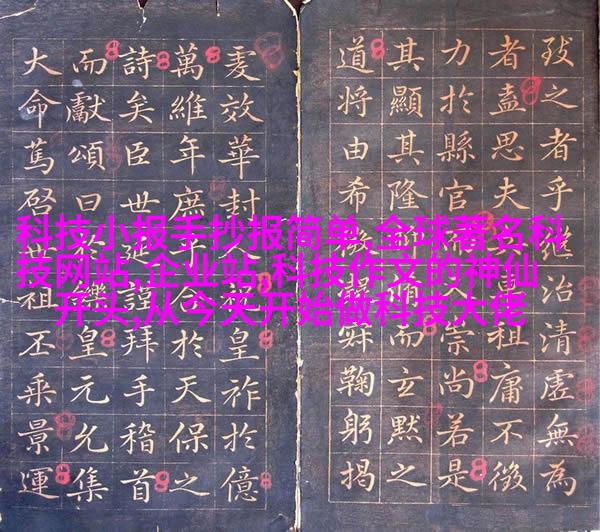 科技小报手抄报简单,全球著名科
技网站,企业站,科技作文的神仙
开头,从今天开始做科技大佬
之者乎治清虛無為
者盍思夫祖庸不徵
力於縣官崇尚若是
其顯其隆而玄默之
道將由希鞠躬揭
效華封皇祚於億
萬維年庶於天保之
詩矣臣世延謹拜手稽首
而獻頌曰於樂皇元允集
大命篤啓世祖丕乘景運